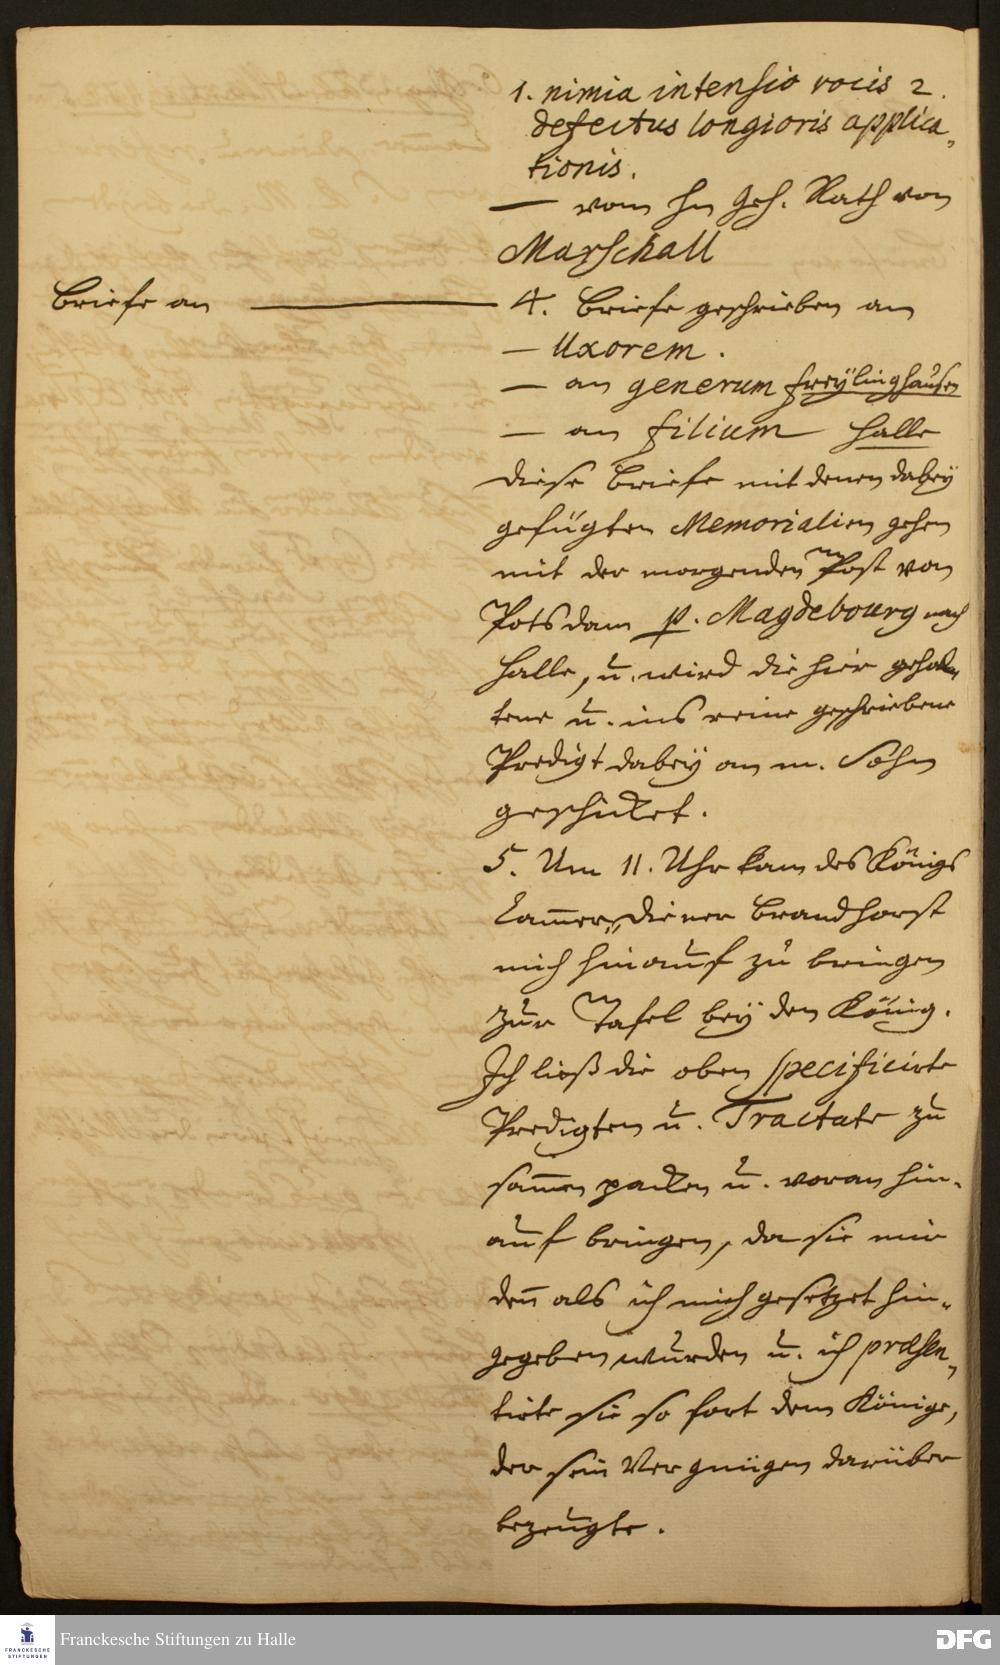 1. nimia intensio vocis 2.
defectus longioris applica-
tionis.
— vom Hn Geh. Rath von
Marschall
Briefe an — 4. Briefe geschrieben an
— Uxorem.
— an generum Freÿlinghausen
— an filium Halle
diese Briefe mit denen dabeÿ
gefügten Memorialien gehen
mit der morgenden Post von
Potsdam p. Magdebourg nach
Halle, u. wird die hier gehal-
tene u. ins reine geschriebene
Predigt dabeÿ an m. Sohn
geschicket.
5. Um 11. Uhr kam des Königs
Cam̄er-Diener Brandhorst
mich hinauf zu bringen
zur Tafel beÿ den König.
Ich ließ die oben specificirte
Predigten u. Tractate zu
sam̄en packen u. voran hin-
auf bringen, da sie mir
den̄ als ich mich gesetzet hin-
gegeben wurden u. ich præsen-
tirte sie so fort dem Könige,
der sein Vergnügen darüber
bezeugte.
FRANCKESCHE
STIFTUNGEN
Franckesche Stiftungen zu Halle
DFG